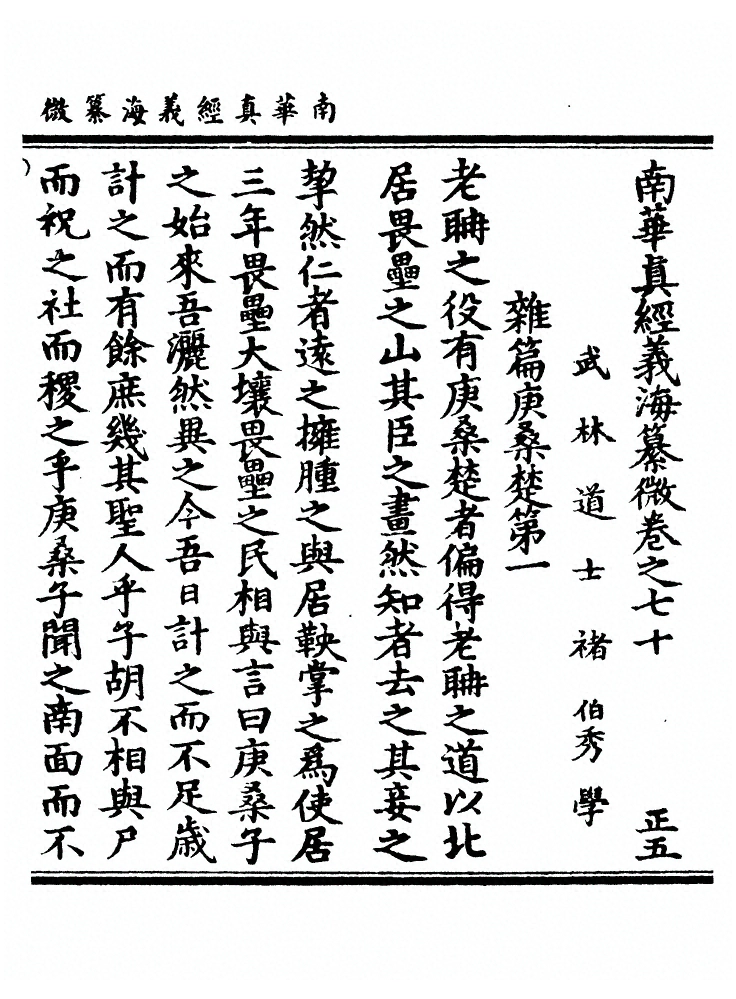 南華真經義海纂微
南華眞經義海纂微卷之七十 正五
武林道士褚伯秀學
雜篇庚桑楚第一
老聃之役有庚桑楚者偏得老聃之道以北
居畏壘之山其臣之畫然知者去之其妾之
挈然仁者遠之擁腫之與居鞅掌之為使居
三年畏壘大壤畏壘之民相與言曰庚桑子
之始來吾灑然異之今吾日計之而不足歲
計之而有餘庶幾其聖人乎子胡不相與尸
而祝之社而稷之乎庚桑子聞之南面而不